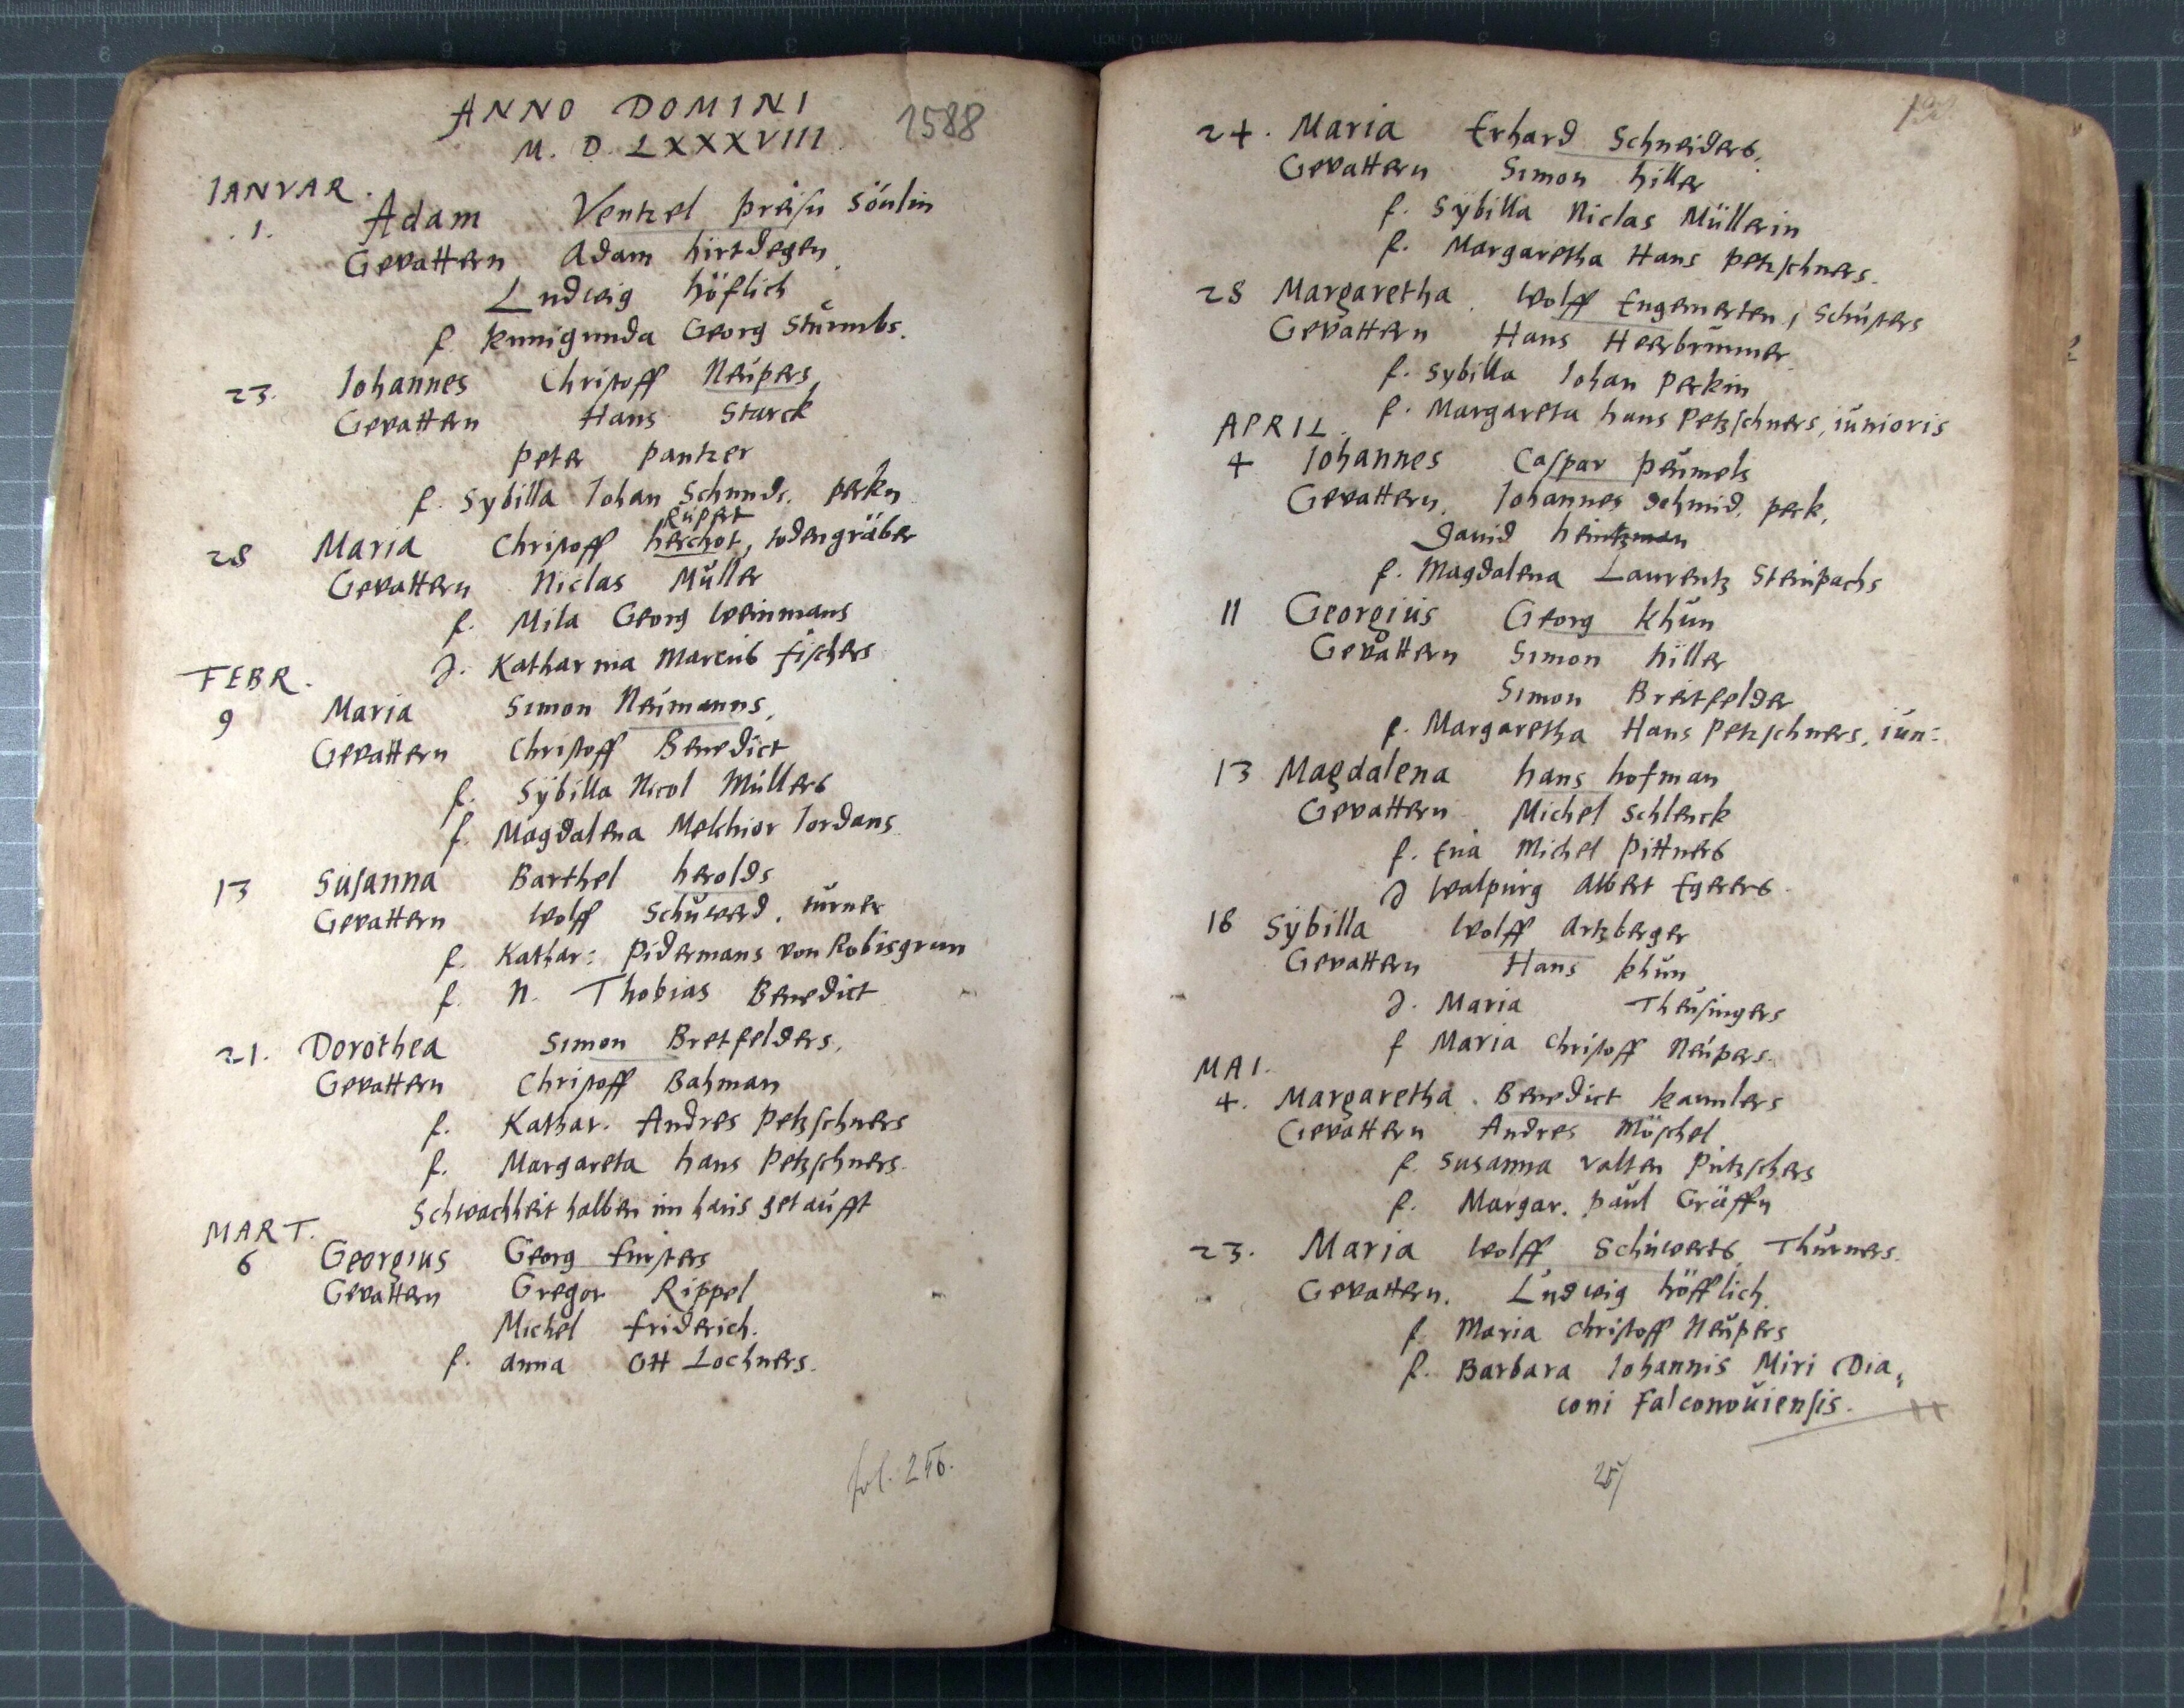 ANNO DOMINI
M. D. LXXXVIII. 1588
IANVAR.
1. Adam Ventzel preisn söulin
Gevattern Adam hirtdegen
Ludwig höflich
f. kunigunda Georg Sturmbs.
23. Iohannes Christoff Neupers,
Gevattern Hans Starck
peter pantzer
f. Sybilla Iohan Schmids. perkn
Rupert
28 Maria Christoff herchot, todengräber
Gevattern Niclas Müller
f. Mila Georg Weinmans
J. Katharina Marcus fischers
FEBR.
9 Maria Simon Neumanns,
Gevattern Christoff Benedict
f. Sybilla Nicol Müllers
f. Magdalena Melchior Iordans
13 Susanna Barthel herolds
Gevattern Wolff Schuwerd, turner
f. Kathar: Pidermans von Robisgrun
f. N. Thobias Benedict
21. Dorothea Simon Bretfelders,
Gevattern Christoff Bahman
f. Kathar. Andres Petzschners
f. Margareta hans Petzschners.
Schwachheit halben im haus getaufft
MART.
6 Georgius Georg finsters
Gevattern Gregor Rippel
Michel friderich.
f. Anna Ott Lochners.
fol. 256.
24. Maria Erhard Schneiders,
Gevattern Simon hiller
f. Sybilla Niclas Müllerin
f. Margaretha Hans petzschners.
28 Margaretha Wolff Engemerten, Schusters
Gevattern Hans Heerbrunner
f. Sybilla Iohan perkin
f. Margareta hans Petzschners, iunioris
APRIL.
4 Iohannes Caspar peumels
Gevattern. Iohannes Schmid, perk,
David heintzman
f. Magdalena Laurentz Steinpachs
11 Georgius Georg khun
Gevattern Simon hiller
Simon Breitfelder
f. Margaretha Hans Petzschners, iun:
13 Magdalena hans hofman
Gevattern Michel Schlenck
f. Eua Michel Pittners
J Walpurg Albert Egerers
18 Sybilla Wolff Artzberger
Gevattern Hans khun
J. Maria Theusingers
f Maria Christoff Neupers.
MAI.
4. Margaretha Benedict kaunlers
Gevattern Andres Möschel
f. Susanna Valten Putzschers
f. Margar. paul Gräffn
23. Maria Wolff Schuwerts, Thurners.
Gevattern. Ludwig höfflich.
f. Maria Christoff Neupers
f. Barbara Iohannis Miri Dia,
coni Falconouiensis.
257